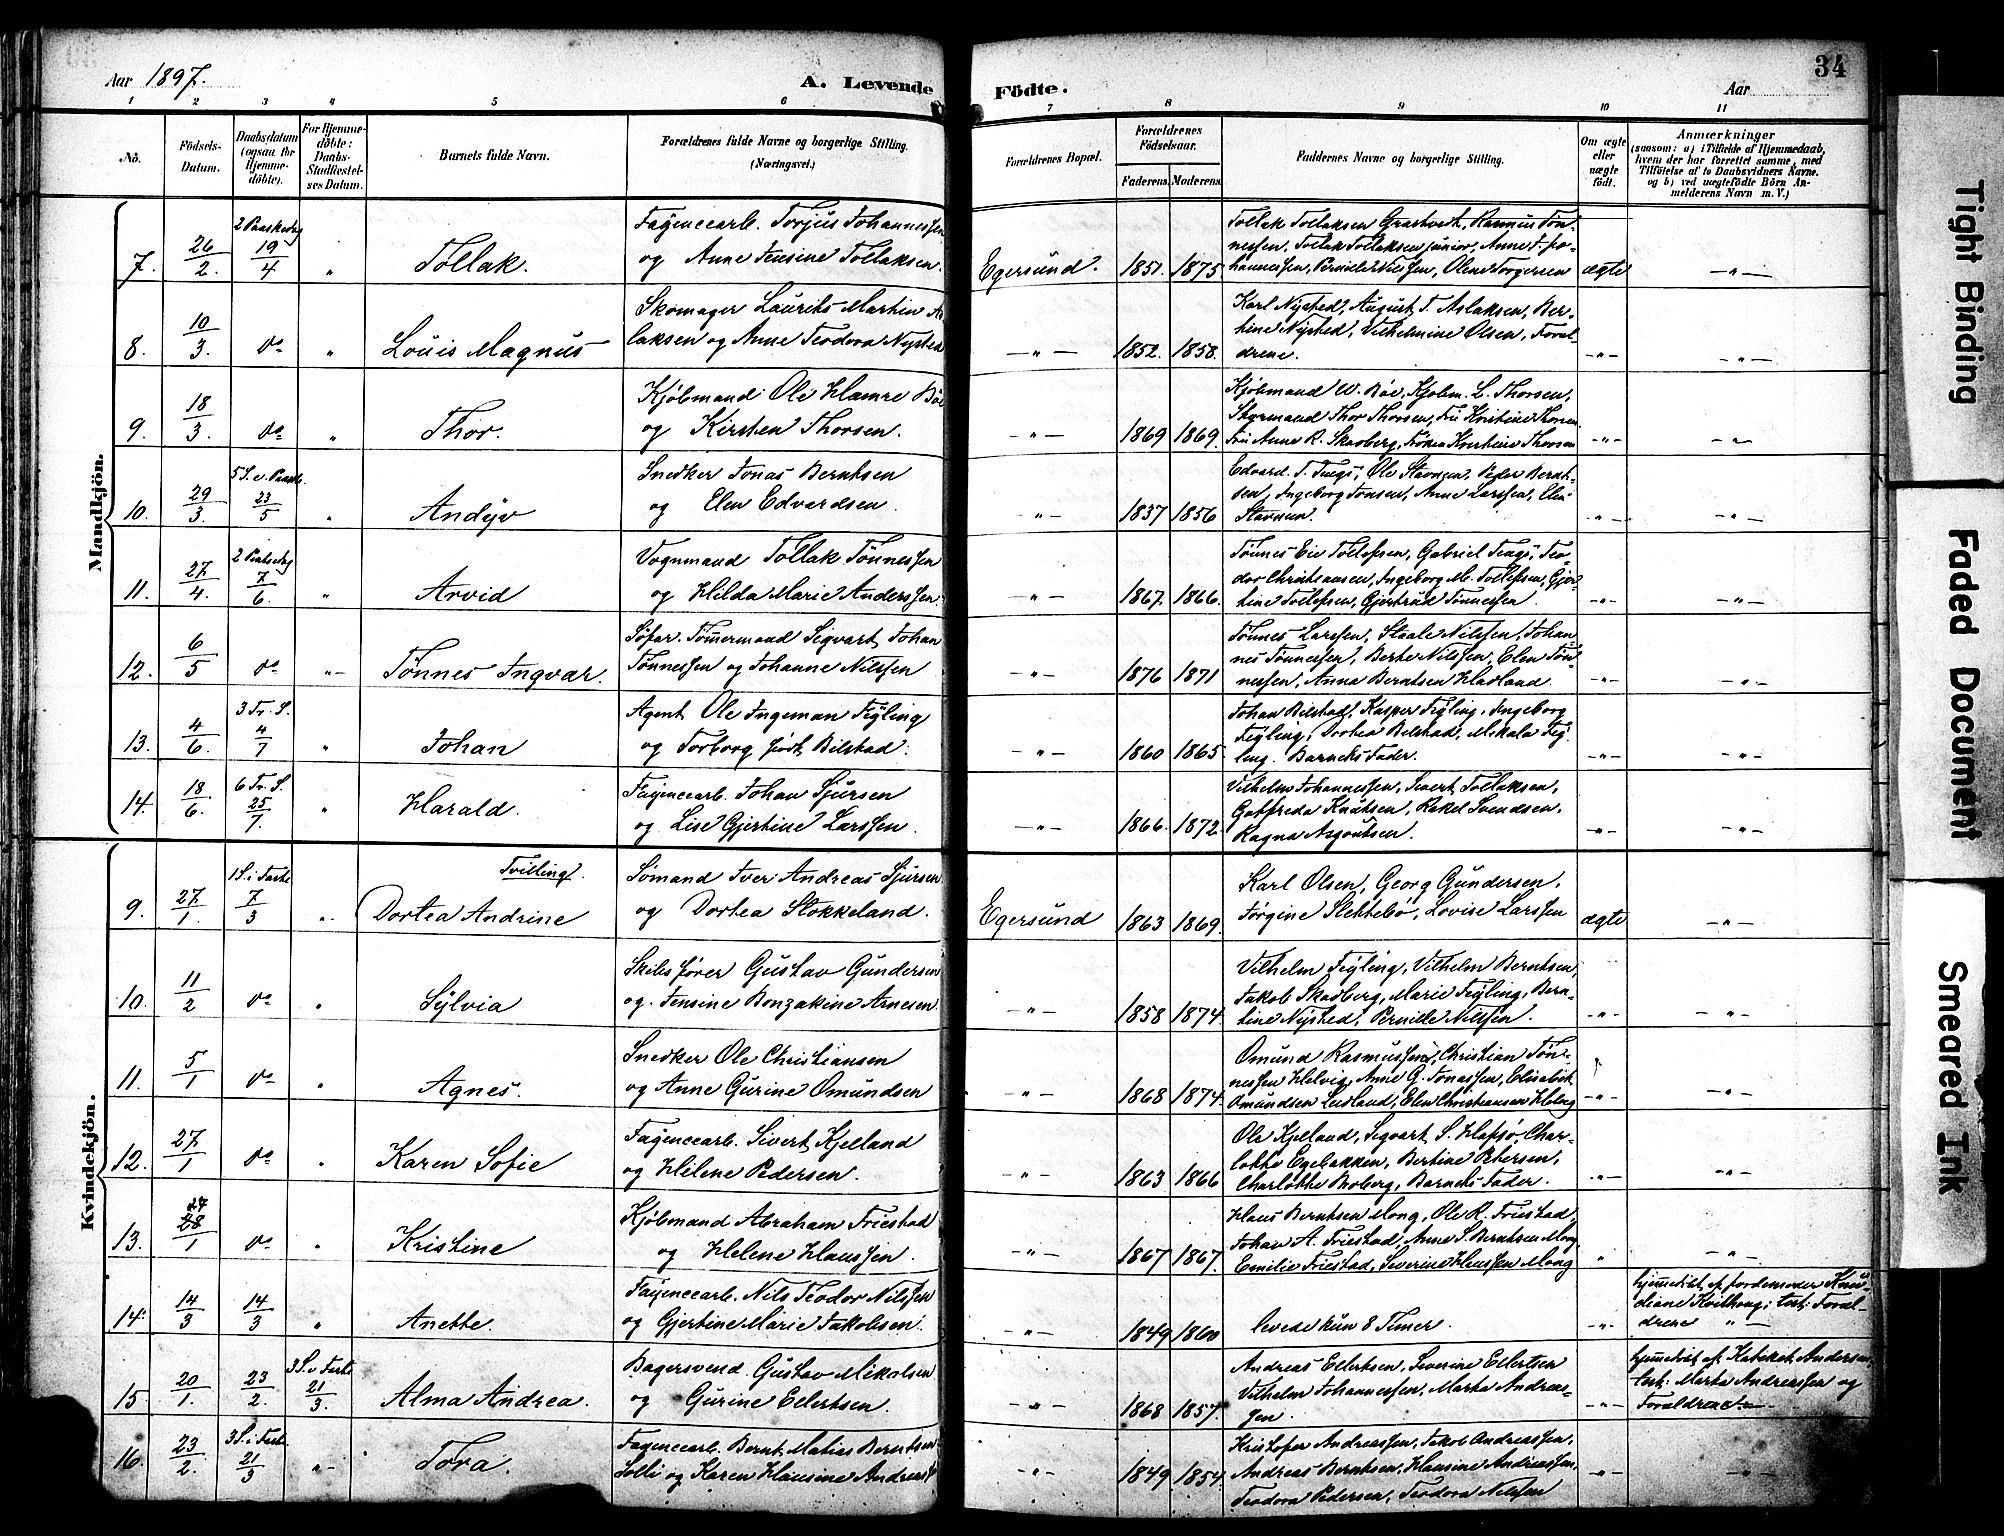 Aar 1897.
A. Levende
Födte.
Aar
34
1 2 3 4 5 6 7 8 9 10 11
No.
Födsels-Datum.
Daabsdatum (ogsaa for Hjemme-döbte).
For Hjemme-döbte: Daabs-Stadfæstel-ses Datum.
Barnets fulde Navn.
Forældrenes fulde Navne og borgerlige Stilling. (Næringsvei.)
Forældrenes Bopæl.
Forældrenes Födselsaar.
Faderens. Moderens.
Faddernes Navne og borgerlige Stilling.
Om ægte eller uægte födt.
Anmærkninger
(saasom: a) i Tilfælde af Hjemmedaab, hvem der har forrettet samme, med Tilföielse af to Daabsvidners Navne. og b) ved uægtefödte Börn An-melderens Navn m. V.)
Mandkjön.
7. 26/2. 2 Paaskedag 19/4 " Tollak. Fayencearb. Torjus Johannessen
og Anne Jensine Tollaksen. Egersund. 1851. 1875
Tollak Tollaksen Grastveit, Rasmus Tön-
nessen, Tollak Tollaksen junior, Anne T. Jo-
hannessen, Pernille Nilssen, Olene Torgersen ægte -"-
8. 10/3. do " Louis Magnus Skomager Laurits Martin As-
laksen og Anne Teodora Nysted -"- 1852. 1858.
Karl Nysted, August T. Aslaksen, Ber-
tine Nysted, Vilhelmine Olsen, Foræl-
drene. -"- -"-
9. 18/3. do " Thor. Kjöbmand Ole Hamre Böe
og Kirsten Thorsen. -"- 1869 1869.
Kjöbmand W. Böe, Kjöbm. L. Thorsen,
Styrmand Thor Thorsen, Fru Kristine Thorsen
Fru Anne R. Skadberg, Fröken Kristine Thorsen -"- -"-
10. 29/3. 5 S. e. Paaske 23/5 " Andyv Snedker Jonas Berntsen
og Elen Edvardsen. -"- 1837 1856
Edvard T. Tengs, Ole Stavnem, Peder Bernt-
sen, Ingeborg Jonsen, Anne Larssen, Elen
Stavnem. -"- -"-
11. 27/4. 2 Pintsedag 7/6. " Arvid Vognmand Tollak Tönnessen
og Hilda Marie Anderssen. -"- 1867. 1866.
Tönnes Eie Tollefsen, Gabriel Tengs, Teo-
dor Christiansen, Ingeborg M. Tollefsen, Gjer-
tine Tollefsen, Gjertrud Tönnessen. -"- -"-
12. 6/5 do " Tönnes Ingvar. Söfar. Tömmermand Sigvart Johan
Tönnessen og Johanne Nilssen -"- 1876 1871
Tönnes Larssen, Staale Nilssen, Johan-
nes Tönnessen, Berte Nilssen, Elen Tön-
nessen, Anna Berntsen Hadland. -"- -"-
13. 4/6. 3 Tr. S. 4/7 " Johan Agent Ole Ingeman Feyling
og Torborg födt Bilstad. -"- 1860 1865
Johan Bilstad, Kasper Feyling, Ingeborg
Feyling, Dortea Bilstad, Mikala Fey-
ling. Barnets Fader. -"- -"-
14. 18/6. 6 Tr. S. 25/7. " Harald. Fayencearb. Johan Sjursen
og Lise Gjertine Larssen. -"- 1866. 1872.
Vilhelm Johannessen, Sivert Tollaksen,
Gotfreda Knutsen, Rakel Svendsen,
Ragna Asgautsen. -"- -"-
Kvindekjön.
9. 27/1. 1 S. i Faste 7/3 " Tvilling. Dortea Andrine Sömand Iver Andreas Sjursen
og Dortea Stokkeland. Egersund 1863 1869.
Karl Olsen, Georg Gundersen,
Jörgine Slettebö, Lovise Larssen ægte -"-
10. 11/2 do " Sylvia Skibsförer Gustav Gundersen
og Jensine Bonzakine Arnesen -"- 1858 1874.
Vilhelm Feyling, Vilhelm Berntsen,
Jakob Skadberg, Marie Feyling, Bern-
tine Nysted, Pernille Nilssen. -"- -"-
11. 5/1 do " Agnes. Snedker Ole Christiansen
og Anne Gurine Omundsen -"- 1868 1874.
Omund Rasmussen, Christian Tön-
nessen Helvig, Anne G. Jonassen, Elisabet
Omundsen Leidland, Elen Christiansen Helvig -"- -"-
12. 27/1 do " Karen Sofie Fayencearb. Sivert Kjelland
og Helene Pedersen. -"- 1863 1866
Ole Kjelland, Sigvart S. Hafsö, Char-
lotte Egebakken, Bertine Petersen,
Charlotte Moberg, Barnets Fader. -"- -"-
13. 27 28/1 do " Kristine Kjöbmand Abraham Friestad
og Helene Hanssen. -"- 1867 1867.
Hans Berntsen Mong, Ole R. Friestad,
Johan A. Friestad, Anne S. Berntsen Mong,
Emilie Friestad, Severine Hanssen Mong " -"-
14. 14/3 14/3 " Anette. Fayencearb. Nils Teodor Nilssen
og Gjertine Marie Jakobsen. -"- 1849 1860
levede kun 8 Timer. -"-
hjemmedöbt af Jordemoder
Kvilhaug; test: Foræl-
drene -"-
15. 20/1. 23/2. 3 S. i Faste 21/3. Alma Andrea. Bagersvend Gustav Mikalsen
og Gurine Eilertsen. -"- 1868 1857.
Andreas Eilertsen, Severine Eilertsen
Vilhelm Johannessen, Marta Andreas-
sen. -"-
hjemmedöbt af Katekat Andersen
test: Marta Andreassen og
Forældrene -"-
16. 23/2. 3 S. i Faste 21/3 " Tora. Fayencearb. Bernt Matias Berntsen
Solli og Karen Hansine Andreas -"- 1849 1854
Kristofer Andreassen, Jakob Andreassen,
Andreas Berntsen, Hansine Andreassen,
Teodora Pedersen, Teodora Nilssen -"- -"-
Tight Binding
Faded Document
Smeared Ink